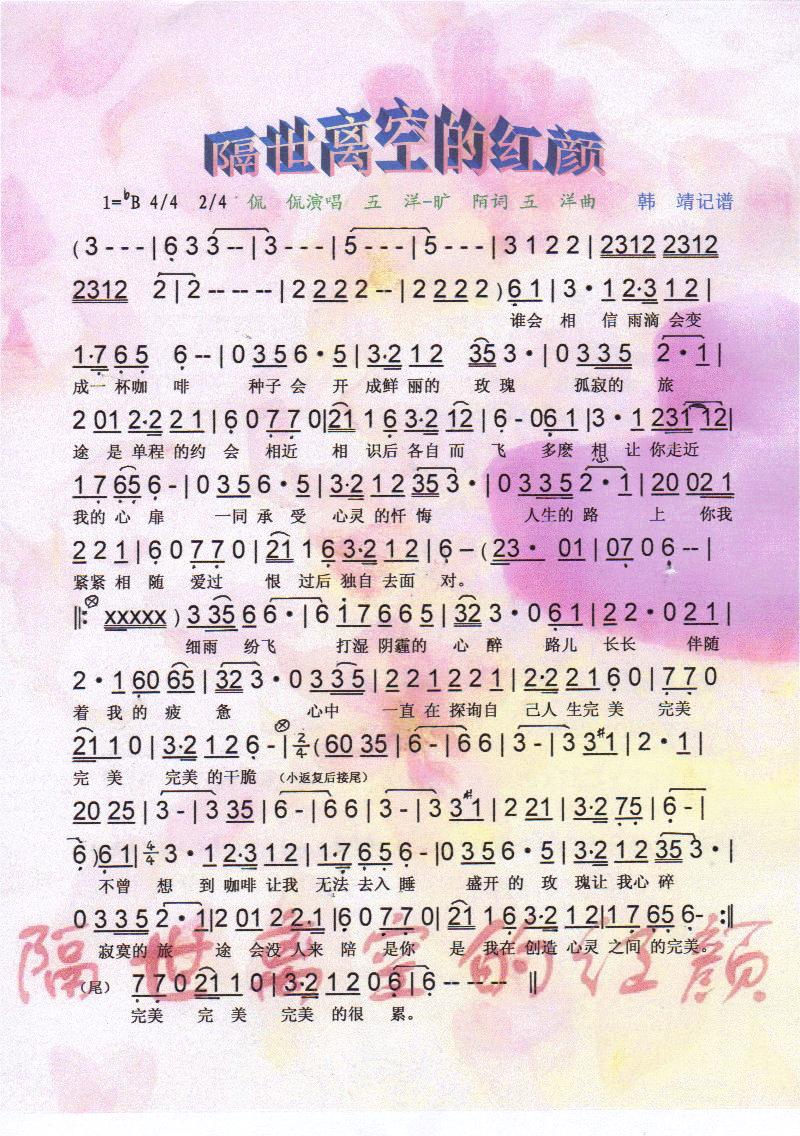 隔世离空的红颜
1=♭B 4/4 2/4 侃 侃演唱 五 洋-旷 陌词 五 洋曲 韩 靖记谱
(3 - - - | 6 3 3 -- | 3 - - - | 5 - - - | 5 - - - | 3 1 2 2 | 2312 2312
2312 2 | 2 -- -- -- | 2 2 2 2 -- | 2 2 2 2 ) 6 1 | 3 · 1 2·3 1 2 |
谁会 相 信 雨滴 会变
1·7 6 5 6 -- | 0 3 5 6 · 5 | 3·2 1 2 35 3 · | 0 3 3 5 2 · 1 |
成一 杯咖 啡 种子 会 开 成鲜 丽的 玫 瑰 孤寂的 旅
2 01 2·2 2 1 | 6 0 7 7 0 | 21 1 6 3·2 12 | 6 - 0 6 1 | 3 · 1 231 12 |
途 是 单程 的约 会 相近 相 识后 各自 而 飞 多麽 想 让 你走近
1 7 65 6 - | 0 3 5 6 · 5 | 3·2 1 2 35 3 · | 0 3 3 5 2 · 1 | 20 02 1
我的 心 扉 一同 承 受 心灵 的忏 悔 人生的 路 上 你我
2 2 1 | 6 0 7 7 0 | 21 1 6 3·2 1 2 | 6 – ( 23 · 01 | 07 0 6 -- |
紧紧 相 随 爱过 恨 过后 独自 去面 对。
‖: ⊗ xxxxx ) 3 35 6 6 · | 6 1 7 6 6 5 | 32 3 · 0 6 1 | 2 2 · 0 2 1 |
细雨 纷飞 打湿 阴霾的 心 醉 路儿 长长 伴随
2 · 1 60 65 | 32 3 · 0 3 3 5 | 2 2 1 2 2 1 | 2·2 2 1 6 0 | 7 7 0
着 我 的 疲 惫 心中 一直 在 探询自 己人 生完 美 完美
21 1 0 | 3·2 1 2 6 - |⊗ 2/4 ( 60 35 | 6 - | 6 6 | 3 - | 3 3♯1 | 2 · 1 |
完 美 完美 的干脆 （小返复后接尾）
20 25 | 3 - | 3 35 | 6 - | 6 6 | 3 - | 3 3♯1 | 2 21 | 3·2 75 | 6 - |
6 ) 6 1 | 4/4 3 · 1 2·3 1 2 | 1·7 6 5 6 - | 0 3 5 6 · 5 | 3·2 1 2 35 3 · |
不曾 想 到 咖啡 让我 无法 去入 睡 盛开 的 玫 瑰让 我心 碎
0 3 3 5 2 · 1 | 2 01 2 2·1 | 6 0 7 7 0 | 21 1 6 3·2 1 2 | 1 7 65 6 - :‖
寂寞的 旅 途 会没 人来 陪 是你 是 我在 创造 心灵 之间 的完美。
隔世离空的红颜
（尾） 7 7 0 21 1 0 | 3·2 1 2 0 6 | 6 -- -- -- ‖
完美 完 美 完美 的很 累。